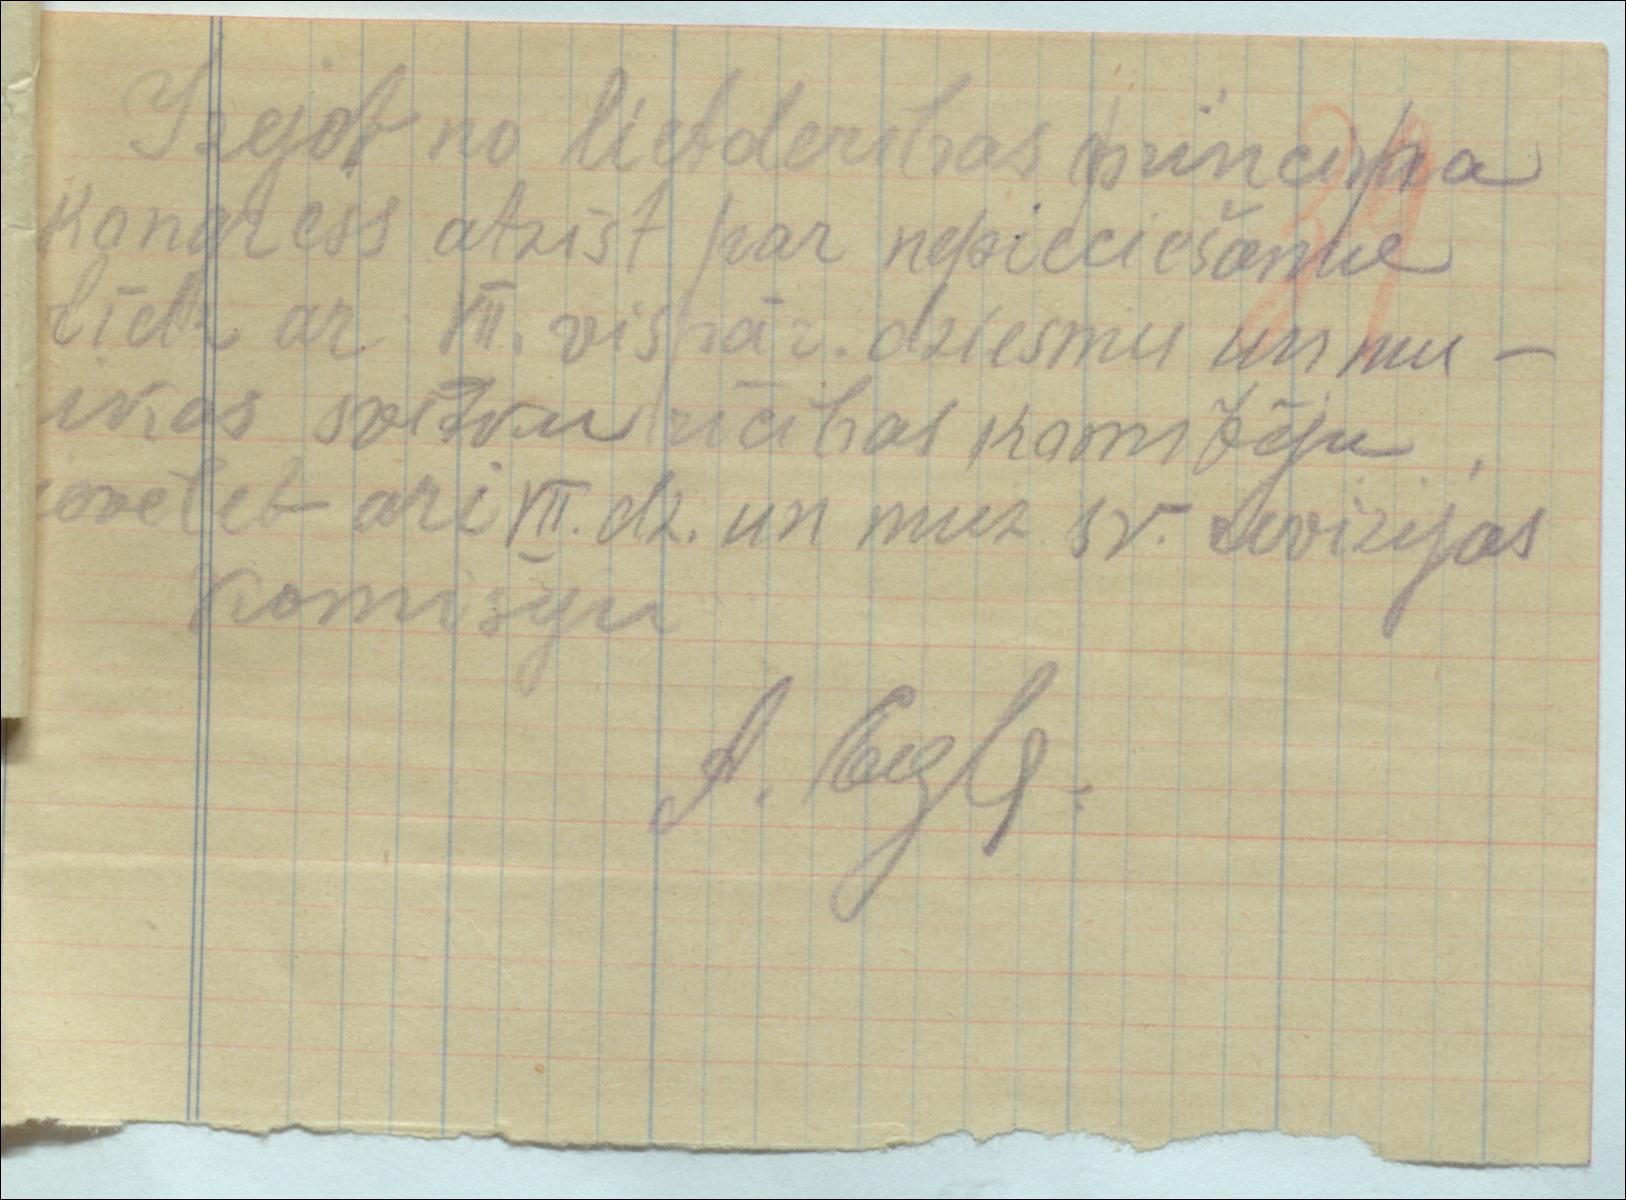 Izejot no lietderibas principa
kongress atzīst par nepieciešamu
līdz ar VII. vispār. dziesmu un mu-
ikas svētku rīcibas komiteju,
ievēlet arī VII. dz. un muz sv. revizijas
komisiju
A. Egle.
29